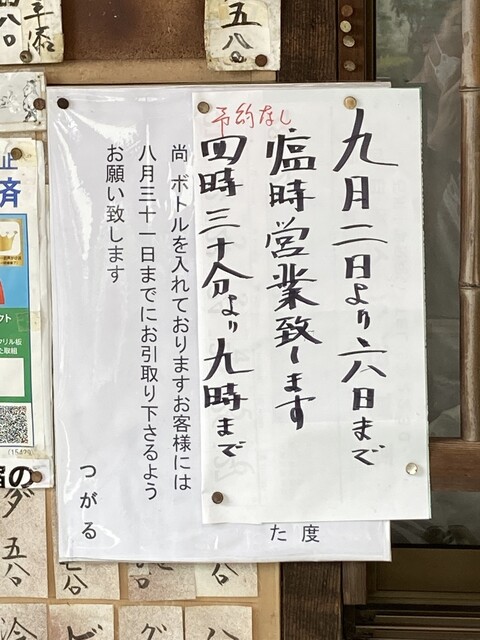 九月二日より六日まで
臨時営業致します
予約なし
四時三十分より九時まで
尚 ボトルを入れておりますお客様には
八月三十一日までにお引取り下さるよう
お願い致します
つがる
度
た
五八〇
八〇
済
フト
リル板
た取組
(15429
宿の
ダ
五八
七八〇